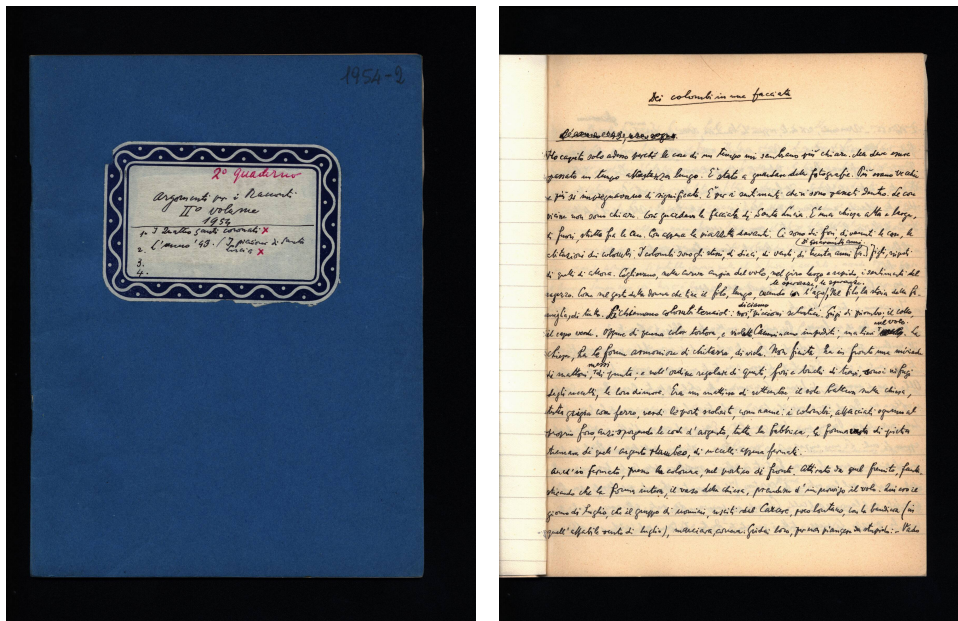 1954-2
2° quaderno
Argomenti per i Racconti
II° volume
1954
1. I Quattro santi coronati x
2. L'anno '43. / Inquisizione di Santa
Lucia x
3.
4.
Dei colombi in una facciata
Ho capito solo adesso perché le cose di un tempo mi sembrano più chiare. Deve essere
passato un tempo abbastanza lungo. È stato a guardare delle fotografie. Più erano vecchie
più si di significato. È per i sentimenti che vi sono passati dentro. Le cose
vicine non sono chiare. Così guardavo la facciata di Santa Lucia. È una chiesa alta e larga,
di fuori, stretta fra le case. Con appena la piazzetta davanti. Ci sono di fori, davanti le case, le
abitazioni di colombi. I colombi sono gli stessi, di dieci, di venti, di trenta anni fa. Figli, nipoti
di quarant'anni
di quelli di allora. Tolgono, nella curva ampia del volo, nel giro largo e rapido, i sentimenti del
le speranze, le speranze,
ragazzo. Come nel gesto della donna che tira il filo, lungo, cucendo con l'ago. Nel filo la storia della fa-
miglia, di tutti. Si chiamano colombi terraioli: noi piccioni selvatici. Grigi di piombo: il collo,
diciamo
il capo verde. Oppure di penna color tortora, e viola. Camminano impediti: ma lievi La
nel volo.
chiesa, ha la forma armoniosa di chitarra, di viola. Non finita, ha in fronte una miriade
di mattoni, di punte: e nell'ordine regolare di questi, fori e buchi di travi, sono i rifugi
messi
degli uccelli, le loro dimore. Era un mattino di settembre, il sole batteva sulla chiesa,
tutta grigia come ferro, verdi le porte svolazzi come rame: i colombi, affacciati ognuno al
proprio foro, anzi sporgendo le code d'argento, tutta la fabbrica, la forma di pietra
tremava di quell'argento, di uccelli appena fermati.
Anch'io fermato, presso la colonna, nel portico di fronte. Attirato da quel fremito, fanta-
sticando che la forma intera, il vaso della chiesa, prendesse d'improvviso il volo. Lì era il
giorno di luglio che il gruppo di uomini, usciti dal Carcere, poco lontano, con la bandiera (in
quell'affabile vento di luglio), marciava ancora. Gridai loro, per non piangere da stupido: - Vado